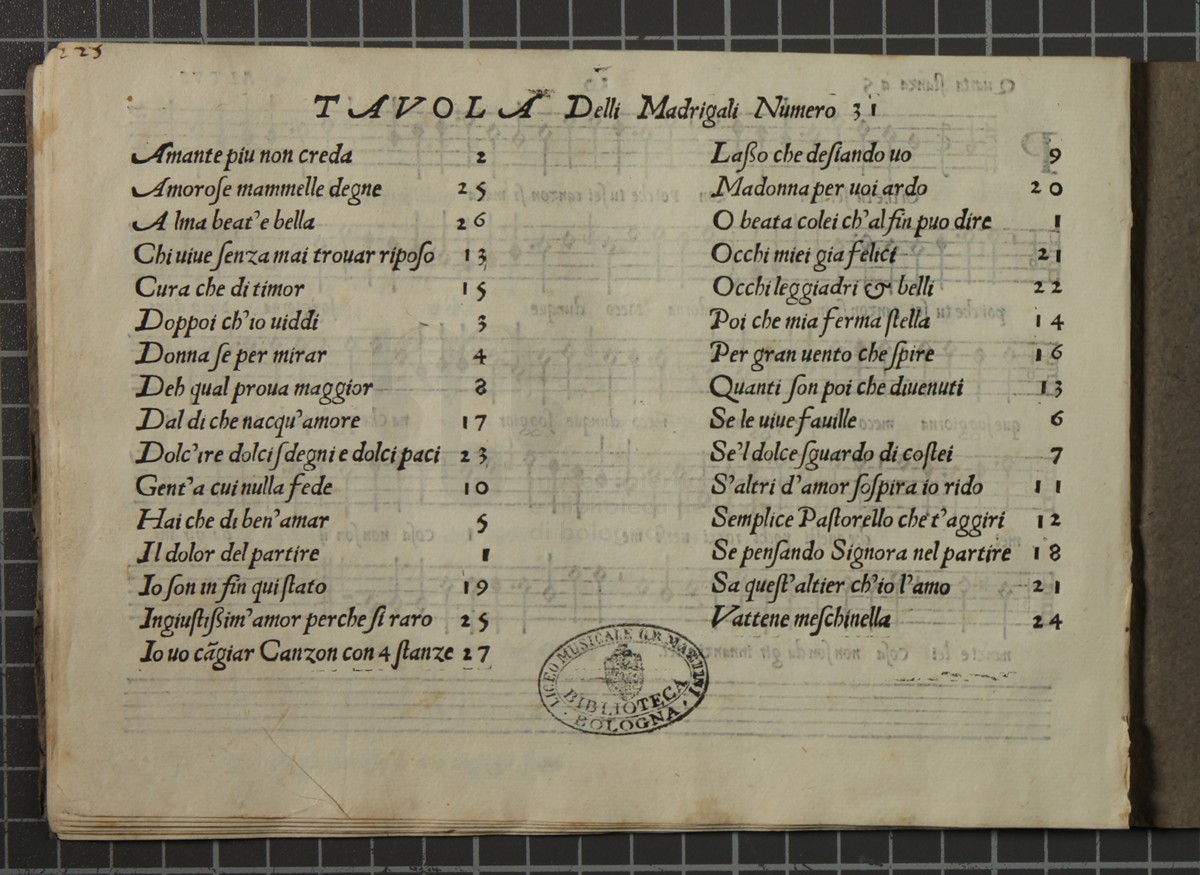 225
TAVOLA Delli Madrigali Numero 31
Amante piu non creda 2
Amoroſe mammelle degne 25
Alma beat'e bella 26
Chi uiue ſenza mai trouar ripoſo 13
Cura che di timor 15
Doppoi ch'io uiddi 3
Donna ſe per mirar 4
Deh qual proua maggior 8
Dal di che nacqu'amore 17
Dolc'ire dolci ſdegni e dolci paci 23
Gent'a cui nulla fede 10
Hai che di ben'amar 5
Il dolor del partire 1
Io ſon in fin qui ſtato 19
Ingiuſtiſſim'amor perche ſi raro 25
Io uo cãgiar Canzon con 4 ſtanze 27
Laſſo che deſiando uo 9
Madonna per uoi ardo 20
O beata colei ch'al fin puo dire 1
Occhi miei gia felici 21
Occhi leggiadri & belli 22
Poi che mia ferma ſtella 14
Per gran uento che ſpire 16
Quanti ſon poi che diuenuti 13
Se le uiue fauille 6
Se'l dolce ſguardo di coſtei 7
S'altri d'amor ſoſpira io rido 11
Semplice Paſtorello che t'aggiri 12
Se penſando Signora nel partire 18
Sa queſt'altier ch'io l'amo 21
Vattene meſchinella 24
LICEO MUSICALE G.B. MARTINI
BIBLIOTECA
BOLOGNA